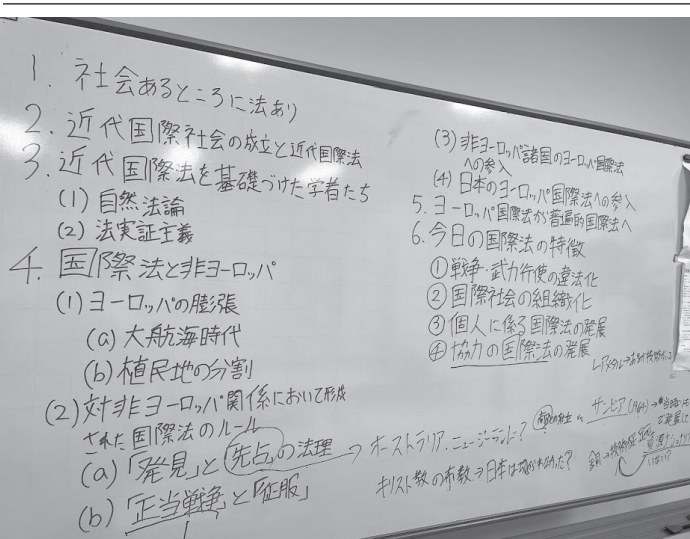 1. 社会あるところに法あり
2. 近代国際社会の成立と近代国際法
3. 近代国際法を基礎づけた学者たち
(1) 自然法論
(2) 法実証主義
4. 国際法と非ヨーロッパ
(1) ヨーロッパの膨張
(a) 大航海時代
(b) 植民地の分割
(2) 対非ヨーロッパ関係において形成
された国際法のルール
(a) 「発見」と「先占」の法理
(b) 「正当戦争」と「征服」
(3) 非ヨーロッパ諸国のヨーロッパ国際法
への参入
(4) 日本のヨーロッパ国際法への参入
5. ヨーロッパ国際法から普遍的国際法へ
6. 今日の国際法の特徴
① 戦争・武力行使の違法化
② 国際社会の組織化
③ 個人に係る国際法の発展
④ 協力の国際法の発展
レアメタル→
→ オーストラリア、ニュージーランド?
サンビア (1964) →
キリスト教の布教→日本は
銅→技術